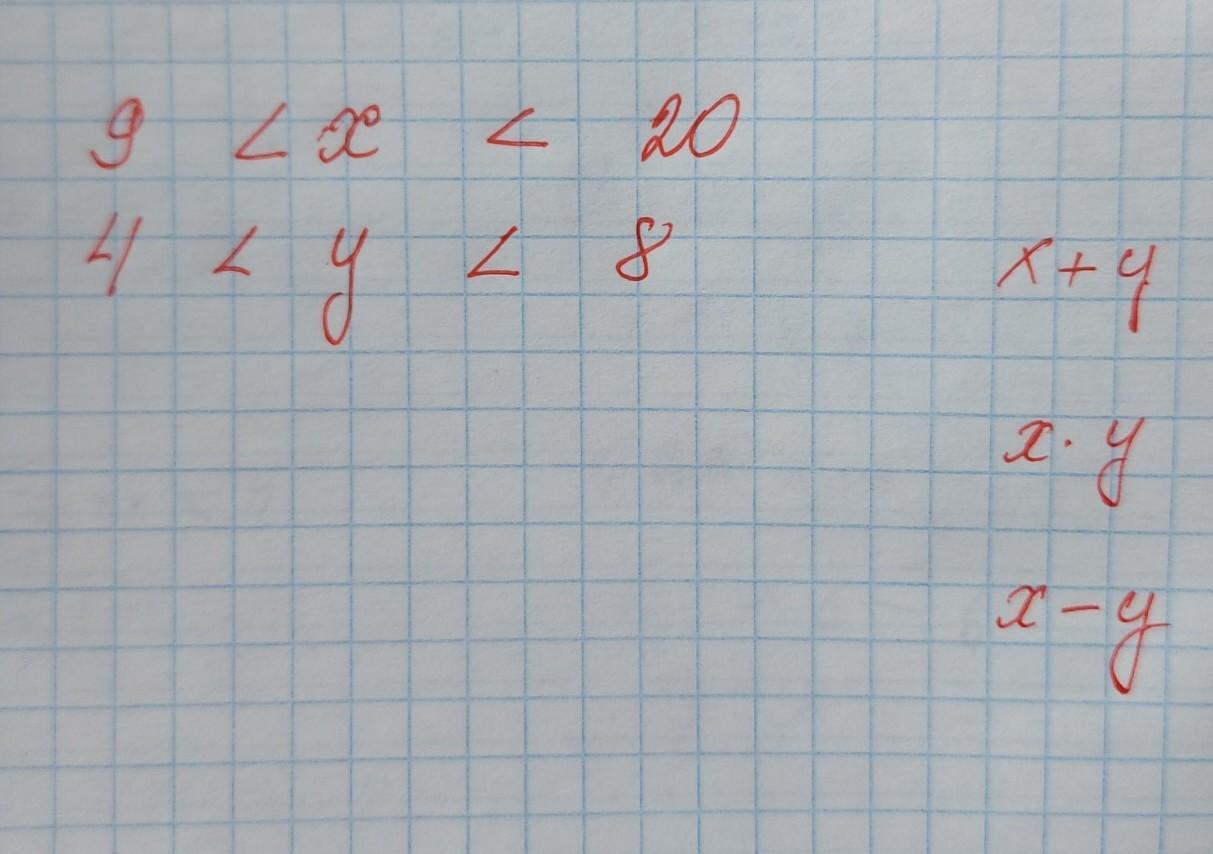 9 < x < 20
4 < y < 8
x + y
x · y
x - y